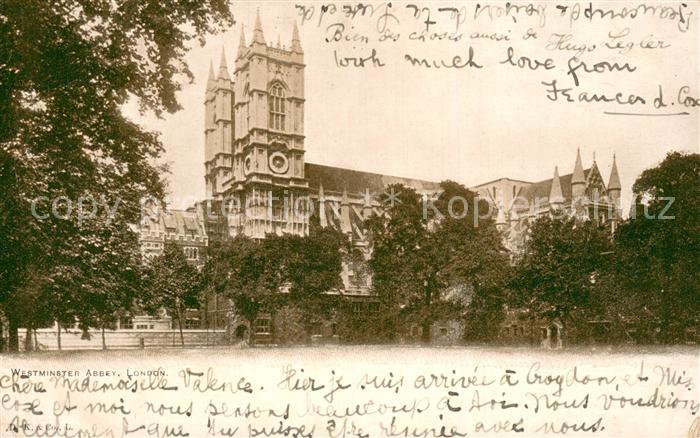 Beaucoup de baisers de ta
Bien des choses aussi de Hugo Legler
With much love from
Frances d. Cox
copyright Postkarten-Paradies.de
WESTMINSTER ABBEY, LONDON.
chère Mademoiselle Valence. Hier je suis arrivée à Croydon, et Mis
Cox et moi, nous pensons beaucoup à toi. Nous voudrions
que tu puisses être réunie avec nous.
& Co., L.